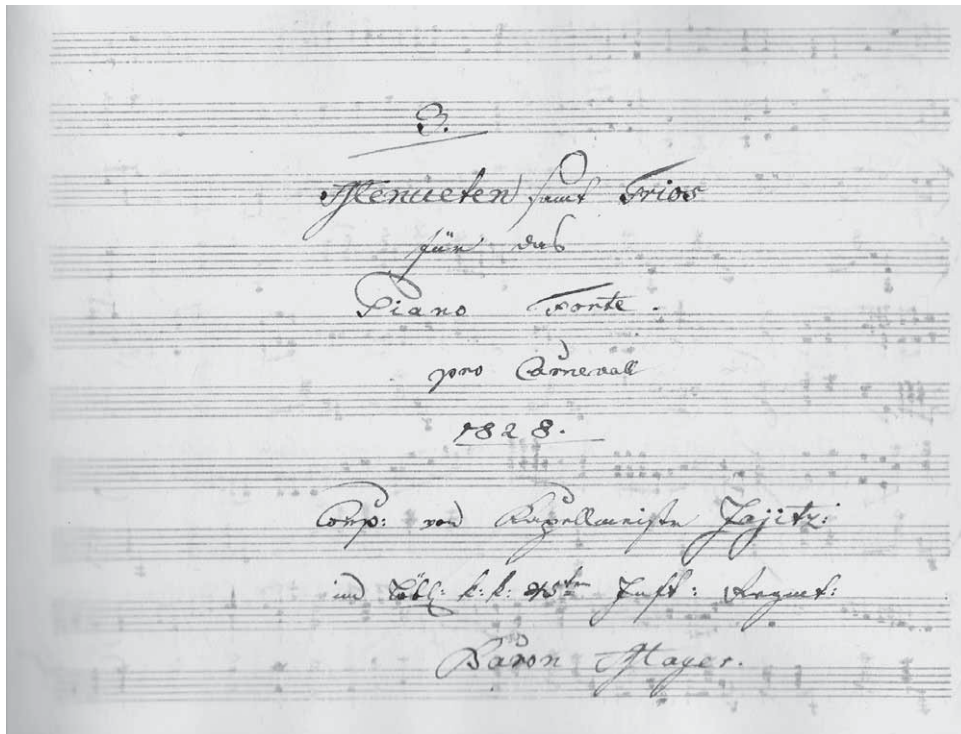 3.
Menueten samt Trios
für das
Piano Forte.
pro Carneval
1828.
Comp: von Kapellmeister Zajitz:
im Löbl: k: k: 45ten Inft: Regmt:
Baron Mayer.